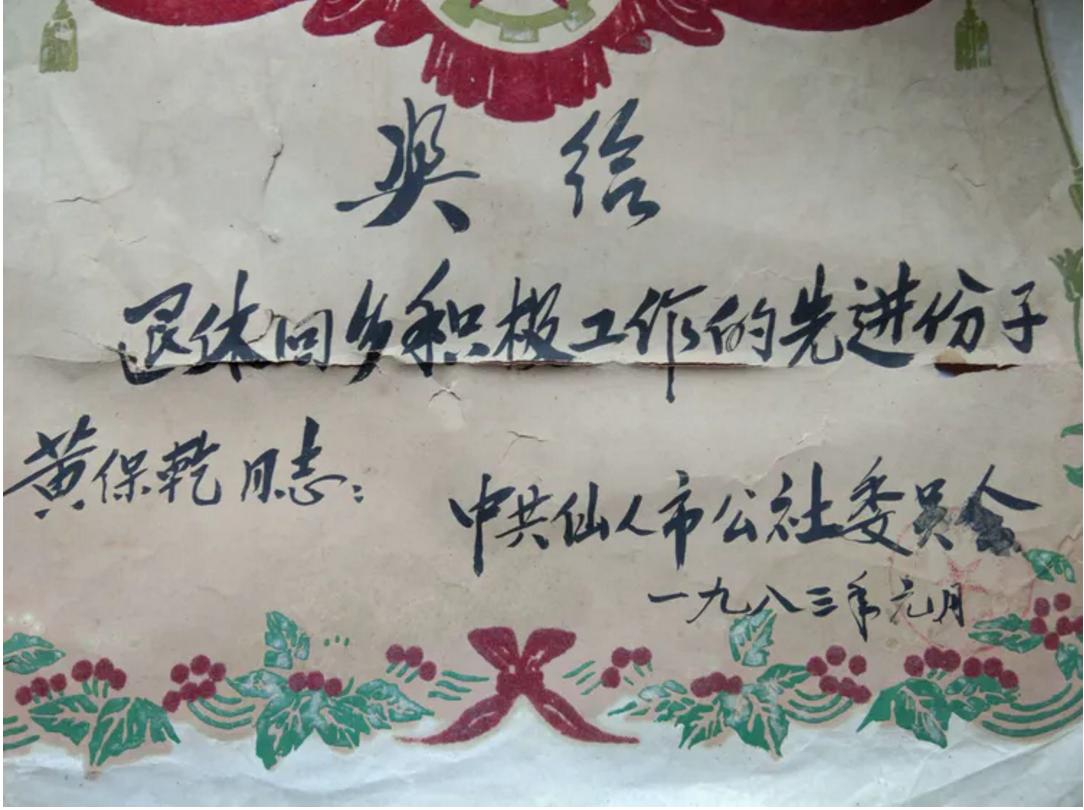 奖给
退休回乡积极工作的先进份子
黄保乾同志：
中共仙人市公社委员会
一九八三年元月